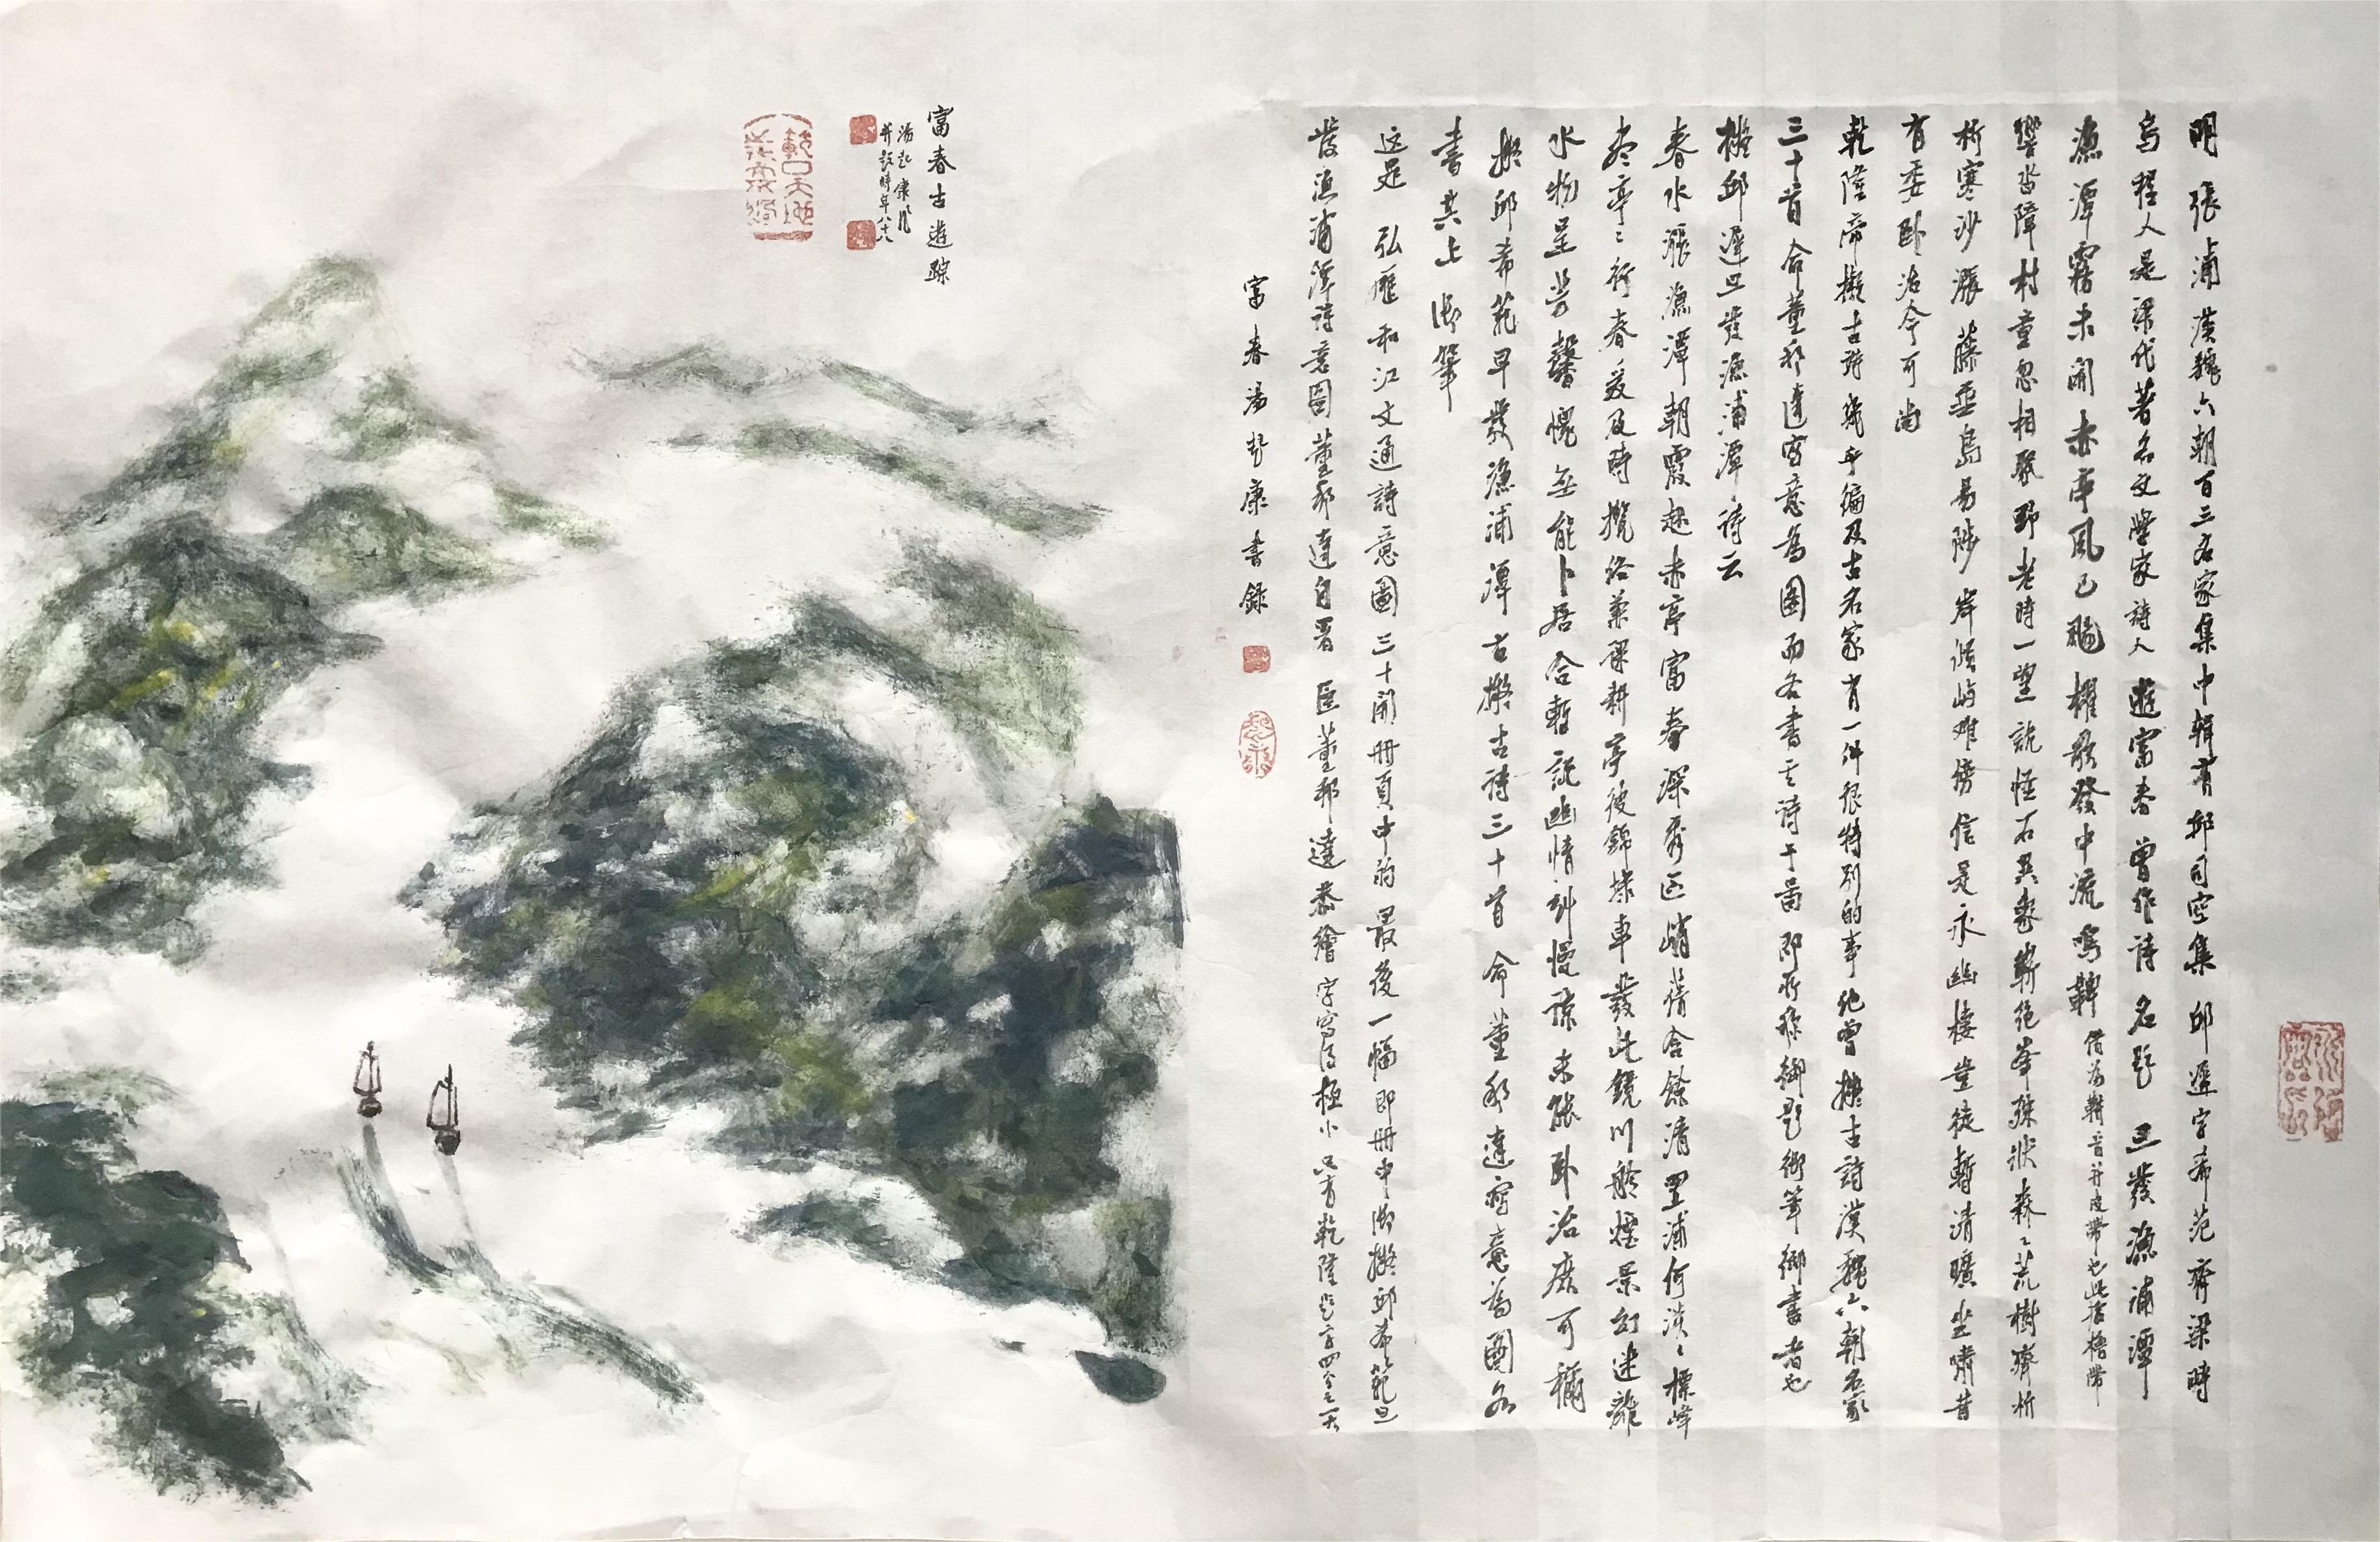 明張溥漢魏六朝百三名家集中輯有邱司空集邱遲字希范齊梁時
烏程人是梁代著名文學家詩人遊富春曾作詩名題旦發漁浦潭
漁潭霧未開赤亭風已颺櫂歌發中流鳴鞞
響沓障村童忽相聚野老時一望詭怪石異象嶄絕峯殊狀森〻荒樹齊析
析寒沙漲藤垂島易陟岸傾嶼难傍信是永幽棲豈徒暫清曠坐嘯昔
有委卧治今可尚
乾隆帝擬古詩幾乎編及古名家有一件很特別的事他曾擬古詩漢魏六朝名家
三十首命董邦達寫意為圖而各書其詩于啚即所稱御題御筆御書者也
擬邱遲旦發漁浦潭詩云
春水漲漁潭朝霞起赤亭富春深秀區峭蒨含餘清罡浦何淡〻標峰
亭〻行春爰及時攬俗兼課耕
水物呈芳馨愧無能卜居合暫託幽情
擬邱希范早發漁浦潭古擬古詩三十首命董邦達寫意為圖各
書其上御筆
这是弘曆和江文通詩意圖三十開冊頁中的最後一幅即冊中御擬邱希範旦
發漁浦潭詩意圖董邦達自署臣董邦達恭繪字寫得極小只有乾隆題字四分之一大
富春湯起康書錄
富春古遊踪
湯起康
并題時年八十八